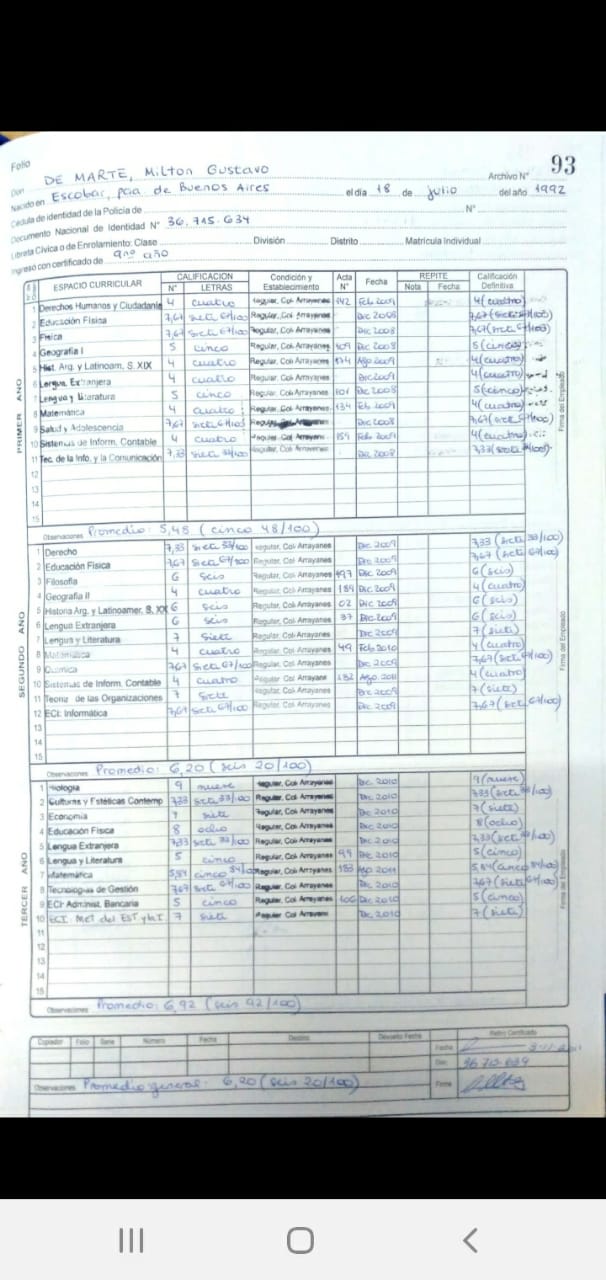 93
Folio
Don DE MARTE, Milton Gustavo Archivo N°
Nacido en Escobar, pcia de Buenos Aires el día 18 de julio del año 1992
Cédula de identidad de la Policía de N°
Documento Nacional de Identidad N° 36.715.634
Libreta Cívica o de Enrolamiento: Clase División Distrito Matrícula Individual
Ingresó con certificado de 9no año
ESPACIO CURRICULAR CALIFICACION N° LETRAS Condición y Establecimiento Acta N° Fecha REPITE Nota Fecha Calificación Definitiva
PRIMER AÑO
1 Derechos Humanos y Ciudadanía 4 cuatro Regular, Col. Arrayanes 142 Feb 2009 4 (cuatro)
2 Educación Física 7,67 siete 67/100 Regular, Col. Arrayanes Dic 2008 7,67 (siete 67/100)
3 Física 7,67 siete 67/100 Regular, Col. Arrayanes Dic 2008 7,67 (siete 67/100)
4 Geografía I 5 cinco Regular, Col. Arrayanes 109 Dic 2008 5 (cinco)
5 Hist. Arg. y Latinoam. S. XIX 4 cuatro Regular, Col. Arrayanes Ago 2009 4 (cuatro)
6 Lengua Extranjera 4 cuatro Regular, Col. Arrayanes Dic 2009 4 (cuatro)
7 Lengua y Literatura 5 cinco Regular, Col. Arrayanes 101 Dic 2008 5 (cinco)
8 Matemática 4 cuatro Regular, Col. Arrayanes 134 Feb 2009 4 (cuatro)
9 Salud y Adolescencia 7,67 siete 67/100 Regular Dic 2008 7,67 (siete 67/100)
10 Sistemas de Inform. Contable 4 cuatro Regular, Col. Arrayanes 159 Feb 2009 4 (cuatro)
11 Tec. de la Info. y la Comunicación 7,33 siete 33/100 Regular, Col. Arrayanes Dic 2008 7,33 (siete 33/100)
12
13
14
15
Firma del Empleado
Observaciones Promedio: 5,48 (cinco 48/100)
SEGUNDO AÑO
1 Derecho 7,33 siete 33/100 Regular, Col. Arrayanes Dic 2009 7,33 (siete 33/100)
2 Educación Física 7,67 siete 67/100 Regular, Col. Arrayanes Dic 2009 7,67 (siete 67/100)
3 Filosofía 6 seis Regular, Col. Arrayanes 197 Dic 2009 6 (seis)
4 Geografía II 4 cuatro Regular, Col. Arrayanes 189 Dic 2009 4 (cuatro)
5 Historia Arg. y Latinoamer. S. XX 6 seis Regular, Col. Arrayanes 02 Dic 2009 6 (seis)
6 Lengua Extranjera 6 seis Regular, Col. Arrayanes 37 Dic 2009 6 (seis)
7 Lengua y Literatura 7 siete Regular, Col. Arrayanes Dic 2009 7 (siete)
8 Matemática 4 cuatro Regular, Col. Arrayanes 49 Feb 2010 4 (cuatro)
9 Química 7,67 siete 67/100 Regular, Col. Arrayanes Dic 2009 7,67 (siete 67/100)
10 Sistemas de Inform. Contable 4 cuatro Regular, Col. Arrayanes 182 Ago 2011 4 (cuatro)
11 Teoría de las Organizaciones 7 siete Regular, Col. Arrayanes Dic 2009 7 (siete)
12 ECI: Informática 7,67 siete 67/100 Regular, Col. Arrayanes Dic 2009 7,67 (siete 67/100)
13
14
15
Firma del Empleado
Observaciones Promedio: 6,20 (seis 20/100)
TERCER AÑO
1 Biología 9 nueve Regular, Col. Arrayanes Dic 2010 9 (nueve)
2 Culturas y Estéticas Contemp 7,33 siete 33/100 Regular, Col. Arrayanes Dic 2010 7,33 (siete 33/100)
3 Economía 7 siete Regular, Col. Arrayanes Dic 2010 7 (siete)
4 Educación Física 8 ocho Regular, Col. Arrayanes Dic 2010 8 (ocho)
5 Lengua Extranjera 7,33 siete 33/100 Regular, Col. Arrayanes Dic 2010 7,33 (siete 33/100)
6 Lengua y Literatura 5 cinco Regular, Col. Arrayanes 99 Dic 2010 5 (cinco)
7 Matemática 5,84 cinco 84/100 Regular, Col. Arrayanes 183 Ago 2011 5,84 (cinco 84/100)
8 Tecnologías de Gestión 7,67 siete 67/100 Regular, Col. Arrayanes Dic 2010 7,67 (siete 67/100)
9 ECI: Administ. Bancaria 5 cinco Regular, Col. Arrayanes 106 Dic 2010 5 (cinco)
10 ECI. Met del Est y la I 7 siete Regular, Col. Arrayanes Dic 2010 7 (siete)
11
12
13
14
15
Firma del Empleado
Observaciones Promedio: 6,92 (seis 92/100)
Copiador Folio Serie Número Fecha Destino Devuelto Fecha Retiró Certificado
Fecha
Doc. 36.715.634
Firma
Observaciones Promedio general: 6,20 (seis 20/100)